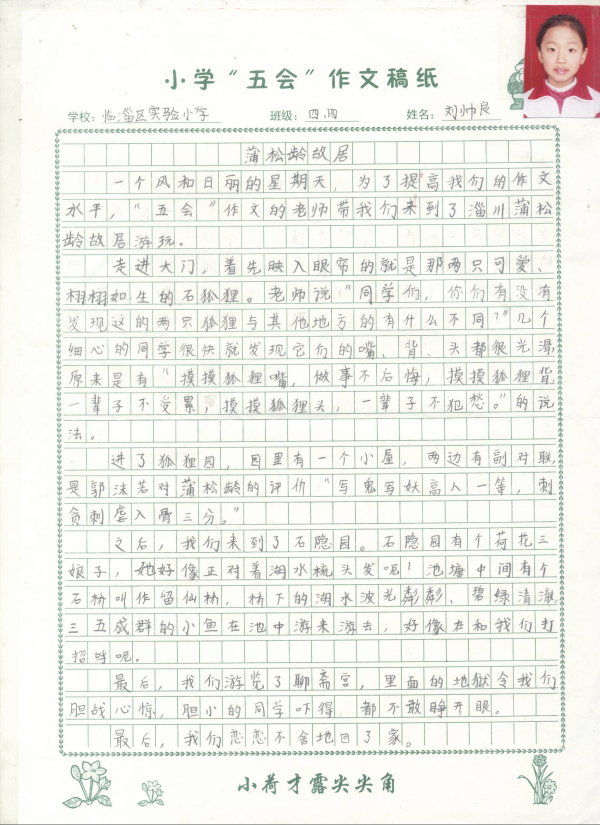 小学“五会”作文稿纸
学校：临淄区实验小学 班级：四、四 姓名：刘帅良
蒲松龄故居
一个风和日丽的星期天，为了提高我们的作文
水平，“五会”作文的老师带我们来到了淄川蒲松
龄故居游玩。
走进大门，着先映入眼帘的就是那两只可爱、
栩栩如生的石狐狸。老师说“同学们，你们有没有
发现这的两只狐狸与其他地方的有什么不同？”几个
细心的同学很快就发现它们的嘴、背、头都很光滑，
原来是有“摸摸狐狸嘴，做事不后悔；摸摸狐狸背
一辈子不受累，摸摸狐狸头，一辈子不犯愁。”的说
法。
进了狐狸园，园里有一个小屋，两边有副对联，
是郭沫若对蒲松龄的评价“写鬼写妖高人一等，刺
贪刺虐入骨三分。”
之后，我们来到了石隐园。石隐园有个荷花三
娘子，她好像正对着湖水梳头发呢！池塘中间有个
石桥叫作留仙桥，桥下的湖水波光粼粼、碧绿清澈，
三五成群的小鱼在池中游来游去，好像在和我们打
招呼呢。
最后，我们游览了聊斋宫，里面的地狱令我们
胆战心惊，胆小的同学吓得，都不敢睁开眼。
最后，我们恋恋不舍地回了家。
小荷才露尖尖角